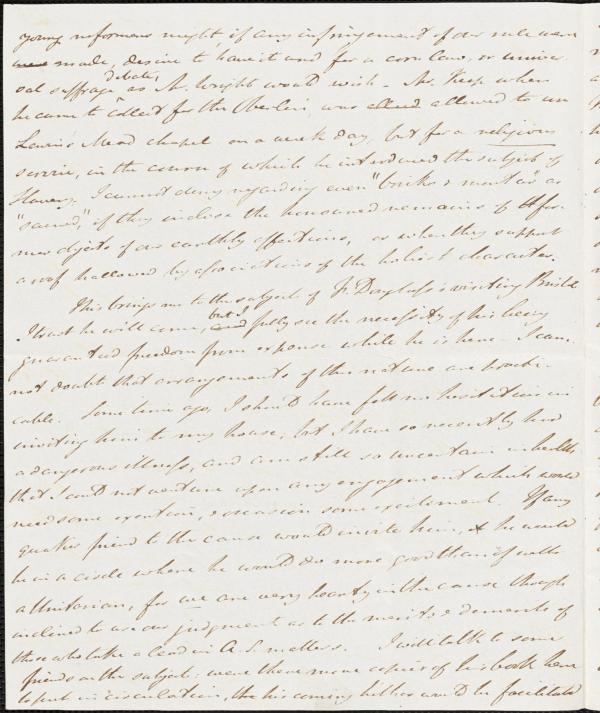 young reformers might, if any infringement of our rule were
were made, desire to have it used for a corn law, or univer-
sal suffrage debate, as Mr. Wright would wish - Mr. Keep when
he came to collect for the Oberlin, was allowed to use
Lewin's Mead chapel on a week day, but for a religious
service, in the course of which he introduced the subject of
Slavery. I cannot deny regarding even "bricks & mortar" as
"sacred," if they inclose the honoured remains of the for-
mer objects of our earthly affections, or when they support
a roof hallowed by associations of the holiest character.
This brings me to the subject of F. Douglass's visiting Bristol
I trust he will come, and but I fully see the necessity of his being
guaranteed freedom from expense while he is here - I can-
not doubt that arrangements of this nature are practi-
cable. Some time ago, I should have felt no hesitation in
inviting him to my house, but I have so recently had
a dangerous illness, and am still so uncertain in health
that I could not venture upon any engagement which would
need some exertion, & occasion some excitement. If any
quaker friend to the cause would invite him, he would
be in a circle where he would do more good than if with
a Unitarian, for we are very hearty in the cause though
inclined to use our judgment as to the merits & demerits of
those who take a lead in A. S. matters. I will talk to some
friends on the subject; were there more copies of his book here
to put in circulation, his coming hither would be facilitated